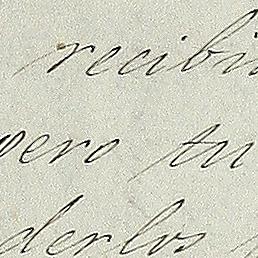 recibi
pero tu
derlos